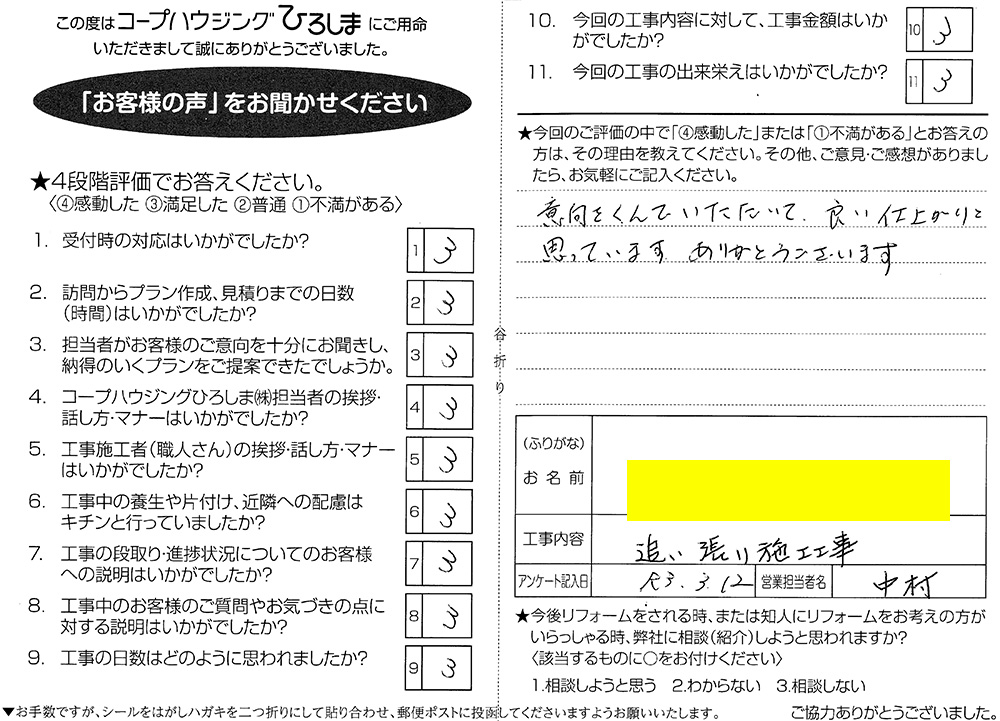 この度はコープハウジングひろしまにご用命
いただきまして誠にありがとうございました。
「お客様の声」をお聞かせください
★4段階評価でお答えください。
〈④感動した ③満足した ②普通 ①不満がある〉
1. 受付時の対応はいかがでしたか?
1 3
2. 訪問からプラン作成、見積りまでの日数
(時間)はいかがでしたか?
2 3
3. 担当者がお客様のご意向を十分にお聞きし、
納得のいくプランをご提案できたでしょうか。
3 3
4. コープハウジングひろしま㈱担当者の挨拶・
話し方・マナーはいかがでしたか?
4 3
5. 工事施工者(職人さん)の挨拶・話し方・マナー
はいかがでしたか?
5 3
6. 工事中の養生や片付け、近隣への配慮は
キチンと行っていましたか?
6 3
7. 工事の段取り・進捗状況についてのお客様
への説明はいかがでしたか?
7 3
8. 工事中のお客様のご質問やお気づきの点に
対する説明はいかがでしたか?
8 3
9. 工事の日数はどのように思われましたか?
9 3
▼お手数ですが、シールをはがしハガキを二つ折りにして貼り合わせ、郵便ポストに投函してくださいますようお願いいたします。
谷折り
10. 今回の工事内容に対して、工事金額はいか
がでしたか?
10 3
11. 今回の工事の出来栄えはいかがでしたか?
11 3
★今回のご評価の中で「④感動した」または「①不満がある」とお答えの
方は、その理由を教えてください。その他、ご意見・ご感想がありまし
たら、お気軽にご記入ください。
意向をくんでいただいて、良い仕上がりと
思っています ありがとうございます
(ふりがな)
お名前
工事内容 追い張り施工工事
アンケート記入日 R3.3.12 営業担当者名 中村
★今後リフォームをされる時、または知人にリフォームをお考えの方が
いらっしゃる時、弊社に相談(紹介)しようと思われますか?
〈該当するものに○をお付けください〉
1.相談しようと思う 2.わからない 3.相談しない
ご協力ありがとうございました。